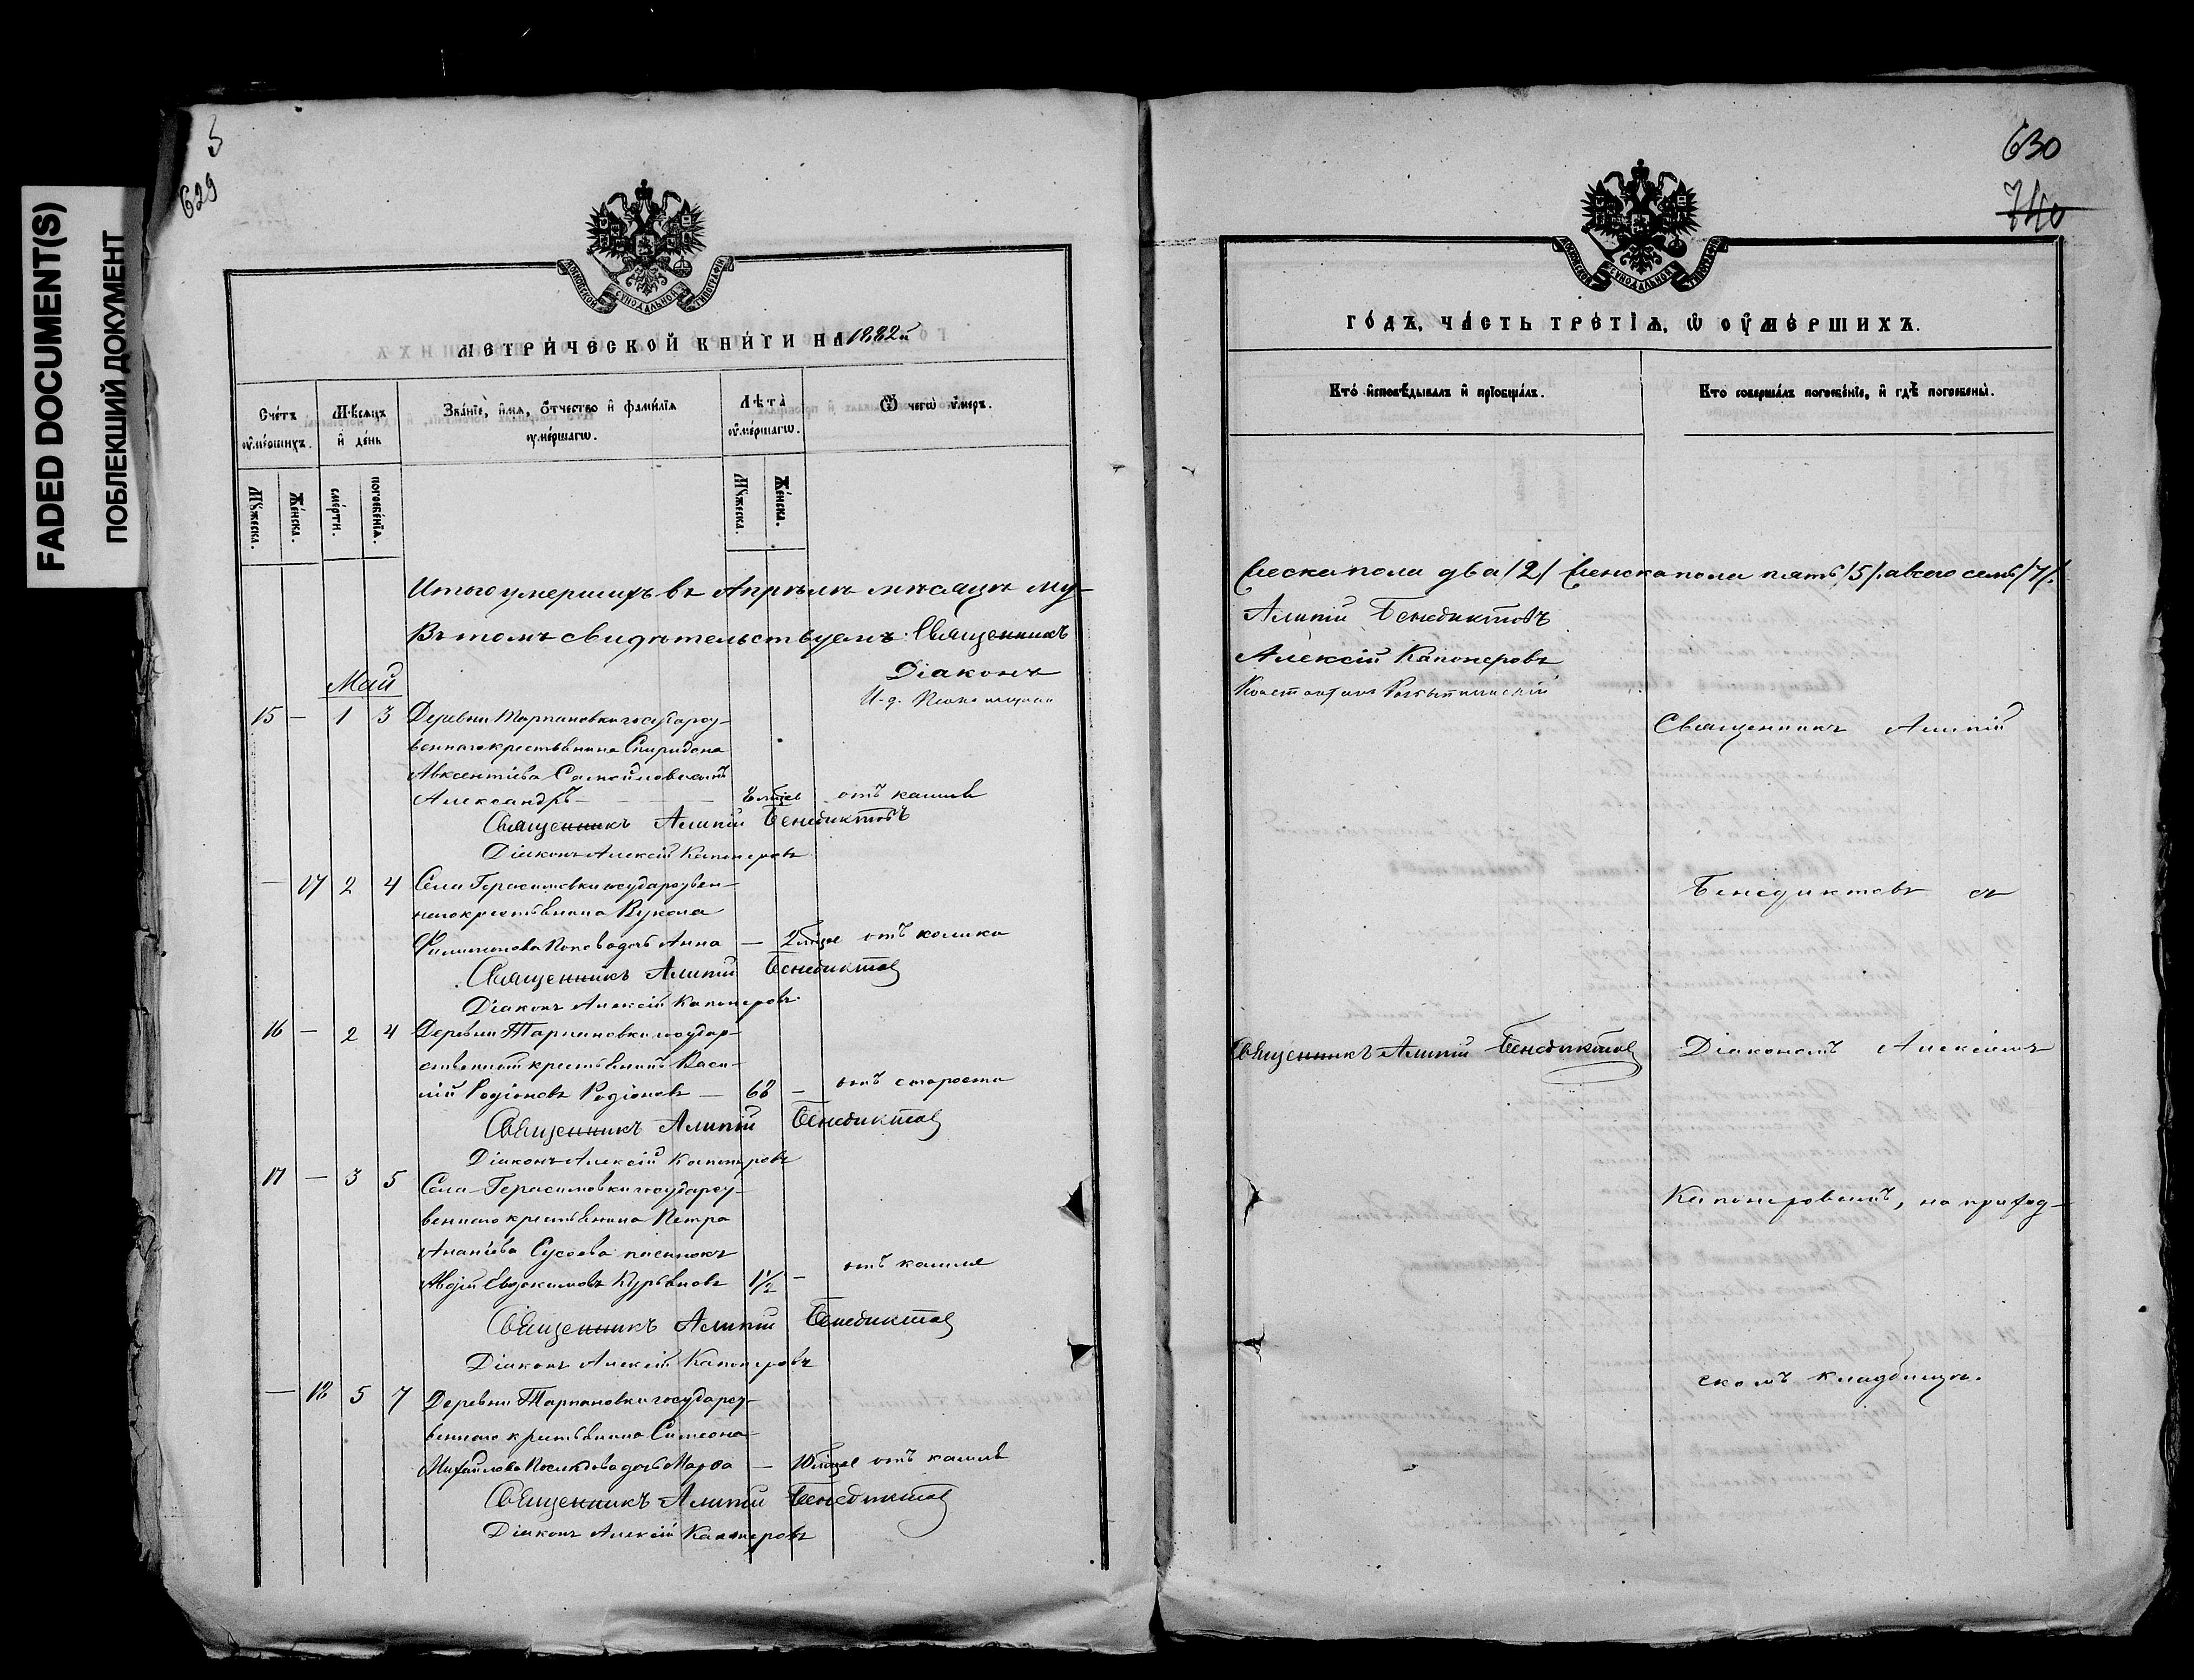 FADED DOCUMENT(S)
ПОБЛЕКШИЙ ДОКУМЕНТ
629
МОСКОВСКОЙ СѴНОДАЛЬНОЙ ТИПОГРАФІИ
МЕТРИ́ЧЕСКОЙ КНИ́ГИ НА 1882й
Сче́тъ ᲂу҆ме́ршихъ.
Мѣ́сяцъ и҆ де́нь
Зва́нїе, и҆́мя, ѻ҆́тчество и҆ фами́лїя ᲂу҆ме́ршагѡ.
Лѣ́та ᲂу҆ме́ршагѡ.
Ѿ чегѡ̀ ᲂу҆́меръ.
Мꙋ́жеска.
Же́нска.
сме́рти.
погребе́нїя.
Мꙋ́жеска.
Же́нска.
Итого умершихъ въ Апрѣлѣ мѣсяцѣ му-
Въ томъ свидѣтельствуемъ: Священникъ
Діаконъ
И. д. Псаломщика
Май
15 — 1 3 Деревни Тарпановки государст-
веннаго крестьянина Спиридона
Авксентіева Самойлова сынъ
Александръ — 8 мѣсяц отъ кашля
Священникъ Алипій Бенедиктовъ
Діаконъ Алексій Капонеровъ
— 17 2 4 Села Герасимовки государствен-
наго крестьянина Вукола
Филимонова Попова дочь Анна — 2 мѣсяц отъ колика
Священникъ Алипій Бенедиктовъ
Діаконъ Алексій Капонеровъ
16 — 2 4 Деревни Тарпановки государ-
ственный крестьянинъ Васи-
лій Родіоновъ Родіоновъ — 68 — отъ старости
Священникъ Алипій Бенедиктовъ
Діаконъ Алексій Капонеровъ
17 — 3 5 Села Герасимовки государст-
веннаго крестьянина Петра
Ананіева Сусоева пасынокъ
Авдій Евдокимовъ Курьяновъ 1½ — отъ кашля
Священникъ Алипій Бенедиктовъ
Діаконъ Алексій Капонеровъ
— 18 5 7 Деревни Тарпановки государст-
веннаго крестьянина Симеона
Михайлова дочь Марѳа — 10 мѣсяц отъ кашля
Священникъ Алипій Бенедиктовъ
Діаконъ Алексій Капонеровъ
630
740
МОСКОВСКОЙ СѴНОДАЛЬНОЙ ТИПОГРАФІИ
ГО́ДЪ, ЧА́СТЬ ТРЕ́ТІѦ, Ѡ҆ ОУ҆МЕ́РШИХЪ.
Кто̀ и҆сповѣ́дывалъ и҆ прїѡбща́лъ.
Кто соверша́лъ погребе́нїе, и҆ гдѣ̀ погребены̀.
жеска пола два /2/ Женска пола пять /5/, а всего семь /7/.
Алипій Бенедиктовъ
Алексій Капонеровъ
Константинъ
Священникъ Алипій
Бенедиктовъ съ
Священникъ Алипій Бенедиктовъ
Діакономъ Алексіемъ
Капонеровымъ, на приход-
скомъ кладбищѣ.